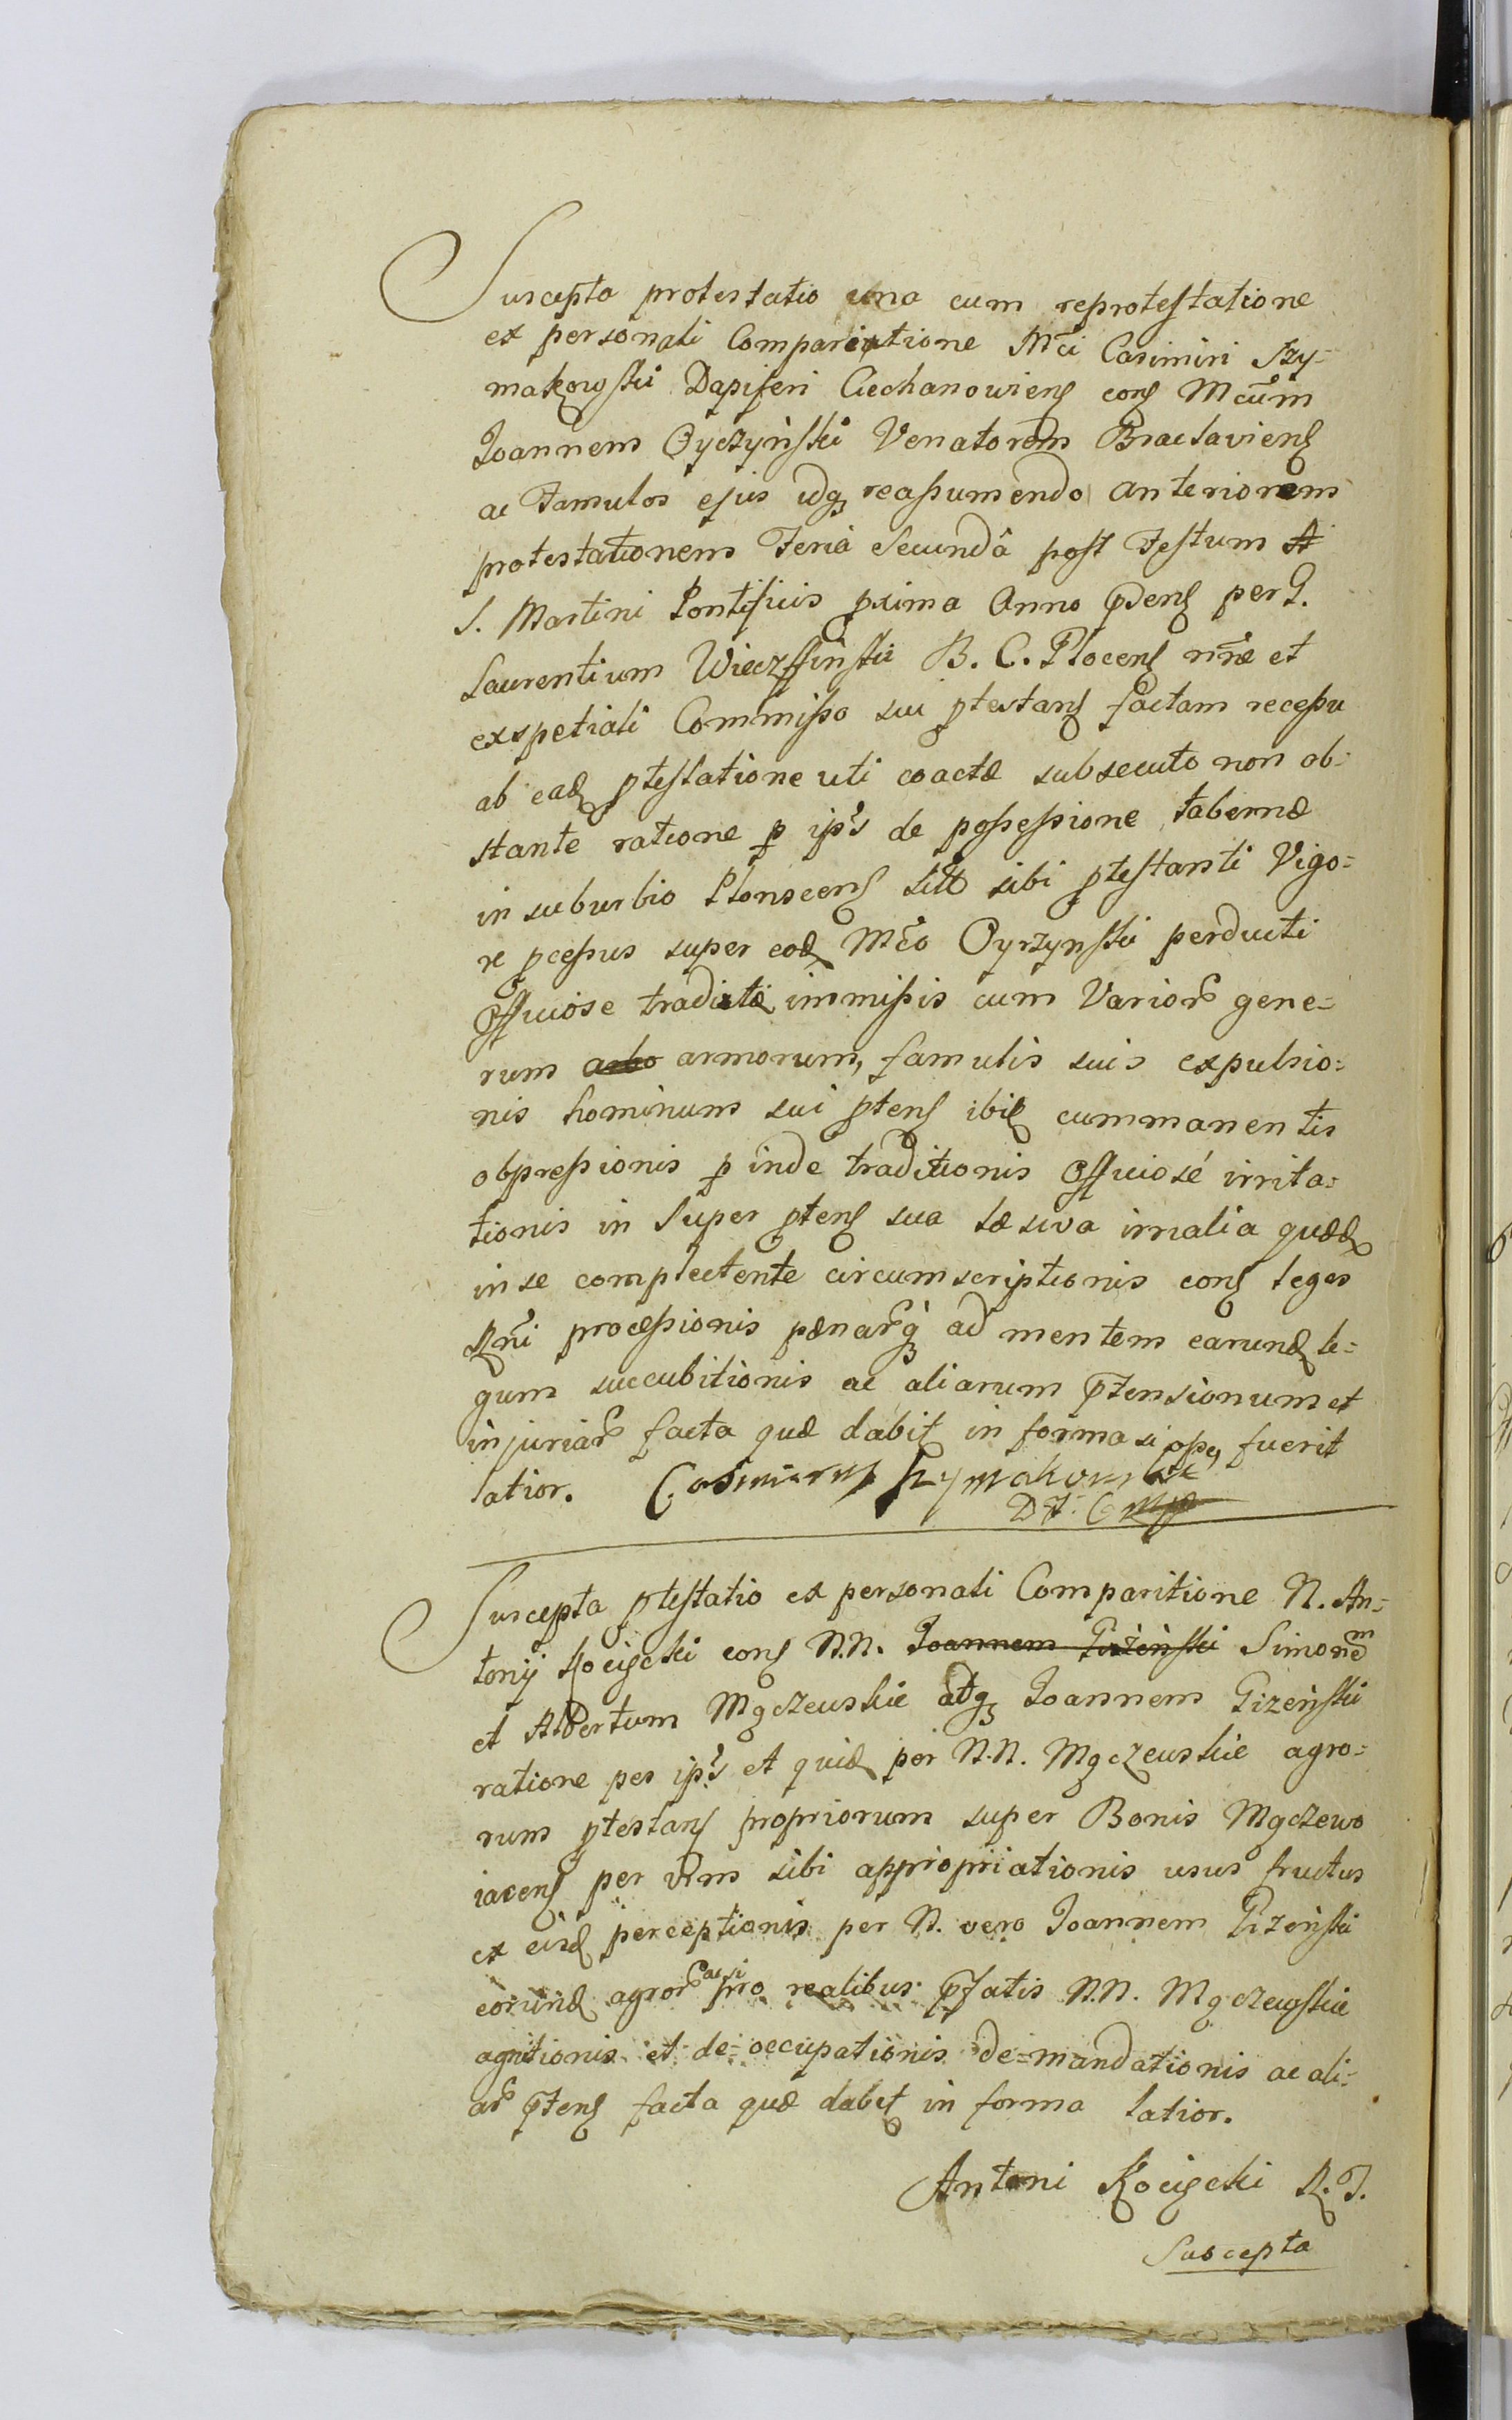 Suscepta protestatio una cum reprotestatione
ex personali Comparitione Mci Casimiri Szy=
makowski Dapiferi Ciechanowiens cons Mcum
Joannem Oyrzyński Venatorem Braclaviens
ac Famulos ejus idq reassumendo anteriorem
protestationem Feria Secunda post Festum
S. Martini Pontificis proxima Anno pdens per G.
Laurentium Wieczffinski B. C. Plocens nne et
ex spetiali Commisso sui ptestans factam recessu
ab ead ptestatione uti coactæ subsecuto non ob=
stante ratione p ips de possessione tabernæ
in suburbio Plonscens sitæ sibi ptestanti Vigo=
re pcessus super eod Mco Oyrzynski perducti
Officiose traditæ immissis cum Varior gene=
rum armorum, famulis suis expulsio=
nis hominum sui ptens ibid cummanentis
obpressionis p inde traditionis Officiosé irrita=
tionis in super ptens sua læsiva irrialia quæd
in se complectente circumscriptionis cons leges
Rni processionis pænarq ad mentem earund le=
gum succubitionis ac aliarum ptensionum et
injuriar facta quæ dabit in forma si opq fuerit
latior. Casimierus Szymakowski
Suscepta ptestatio ex personali Comparitione N. An=
tonij Kocięcki cons N.N. Joannem Gizeński Simonem
et Albertum Mączewskie atq Joannem Gizeński
ratione per ips et quid per N.N. Mączewskie agro=
rum ptestans propriorum super Bonis Mączewo
iacens per vim sibi appropriationis usus fructus
ex eisd perceptionis per N. vero Joannem Gizeński
eorund agror acsi pro realibus pfatis N.N. Mączewskie
agnitionis et de=occupationis de=mandationis ac ali=
ar ptens facta quæ dabit in forma latior.
Antoni Kocięcki R. T.
Suscepta